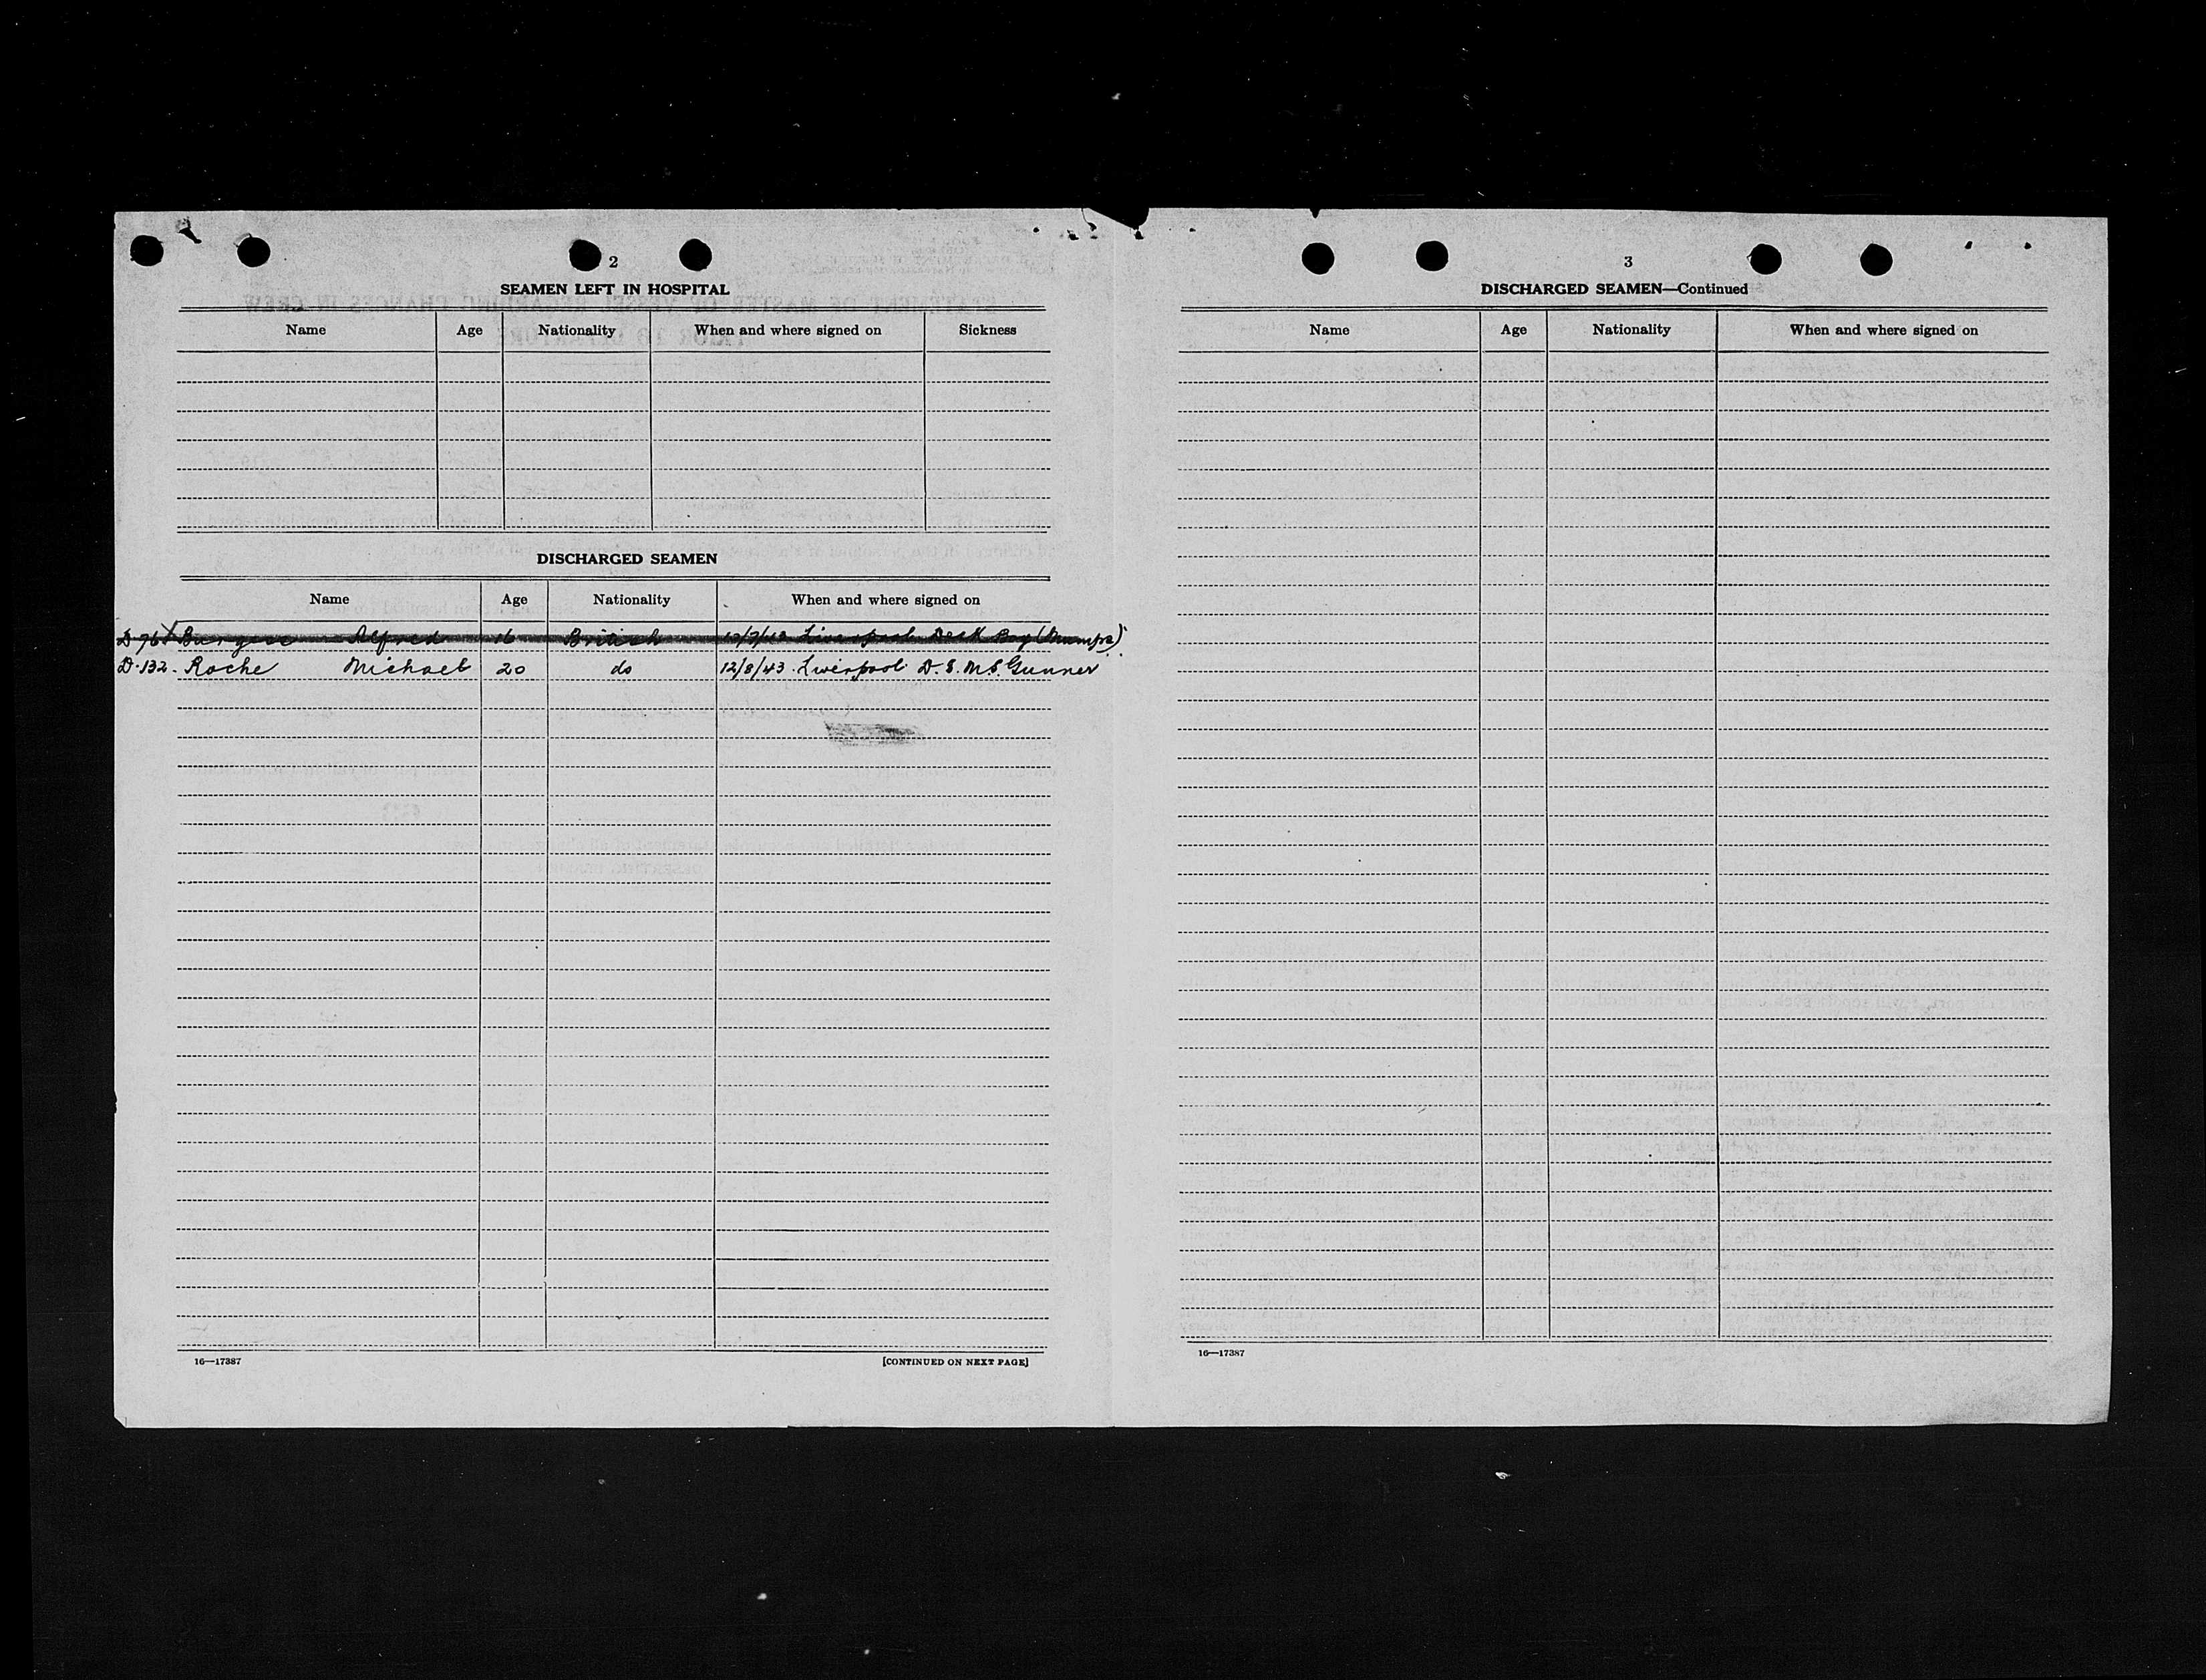 2
SEAMEN LEFT IN HOSPITAL
Name Age Nationality When and where signed on Sickness
DISCHARGED SEAMEN
Name Age Nationality When and where signed on
Alfred 16 British Liverpool Deck Boy (Mumps)
D.132. Roche Michael 20 do 12/8/43. Liverpool D.E.M.S. Gunner
16—17387 [CONTINUED ON NEXT PAGE]
3
DISCHARGED SEAMEN—Continued
Name Age Nationality When and where signed on
16—17387